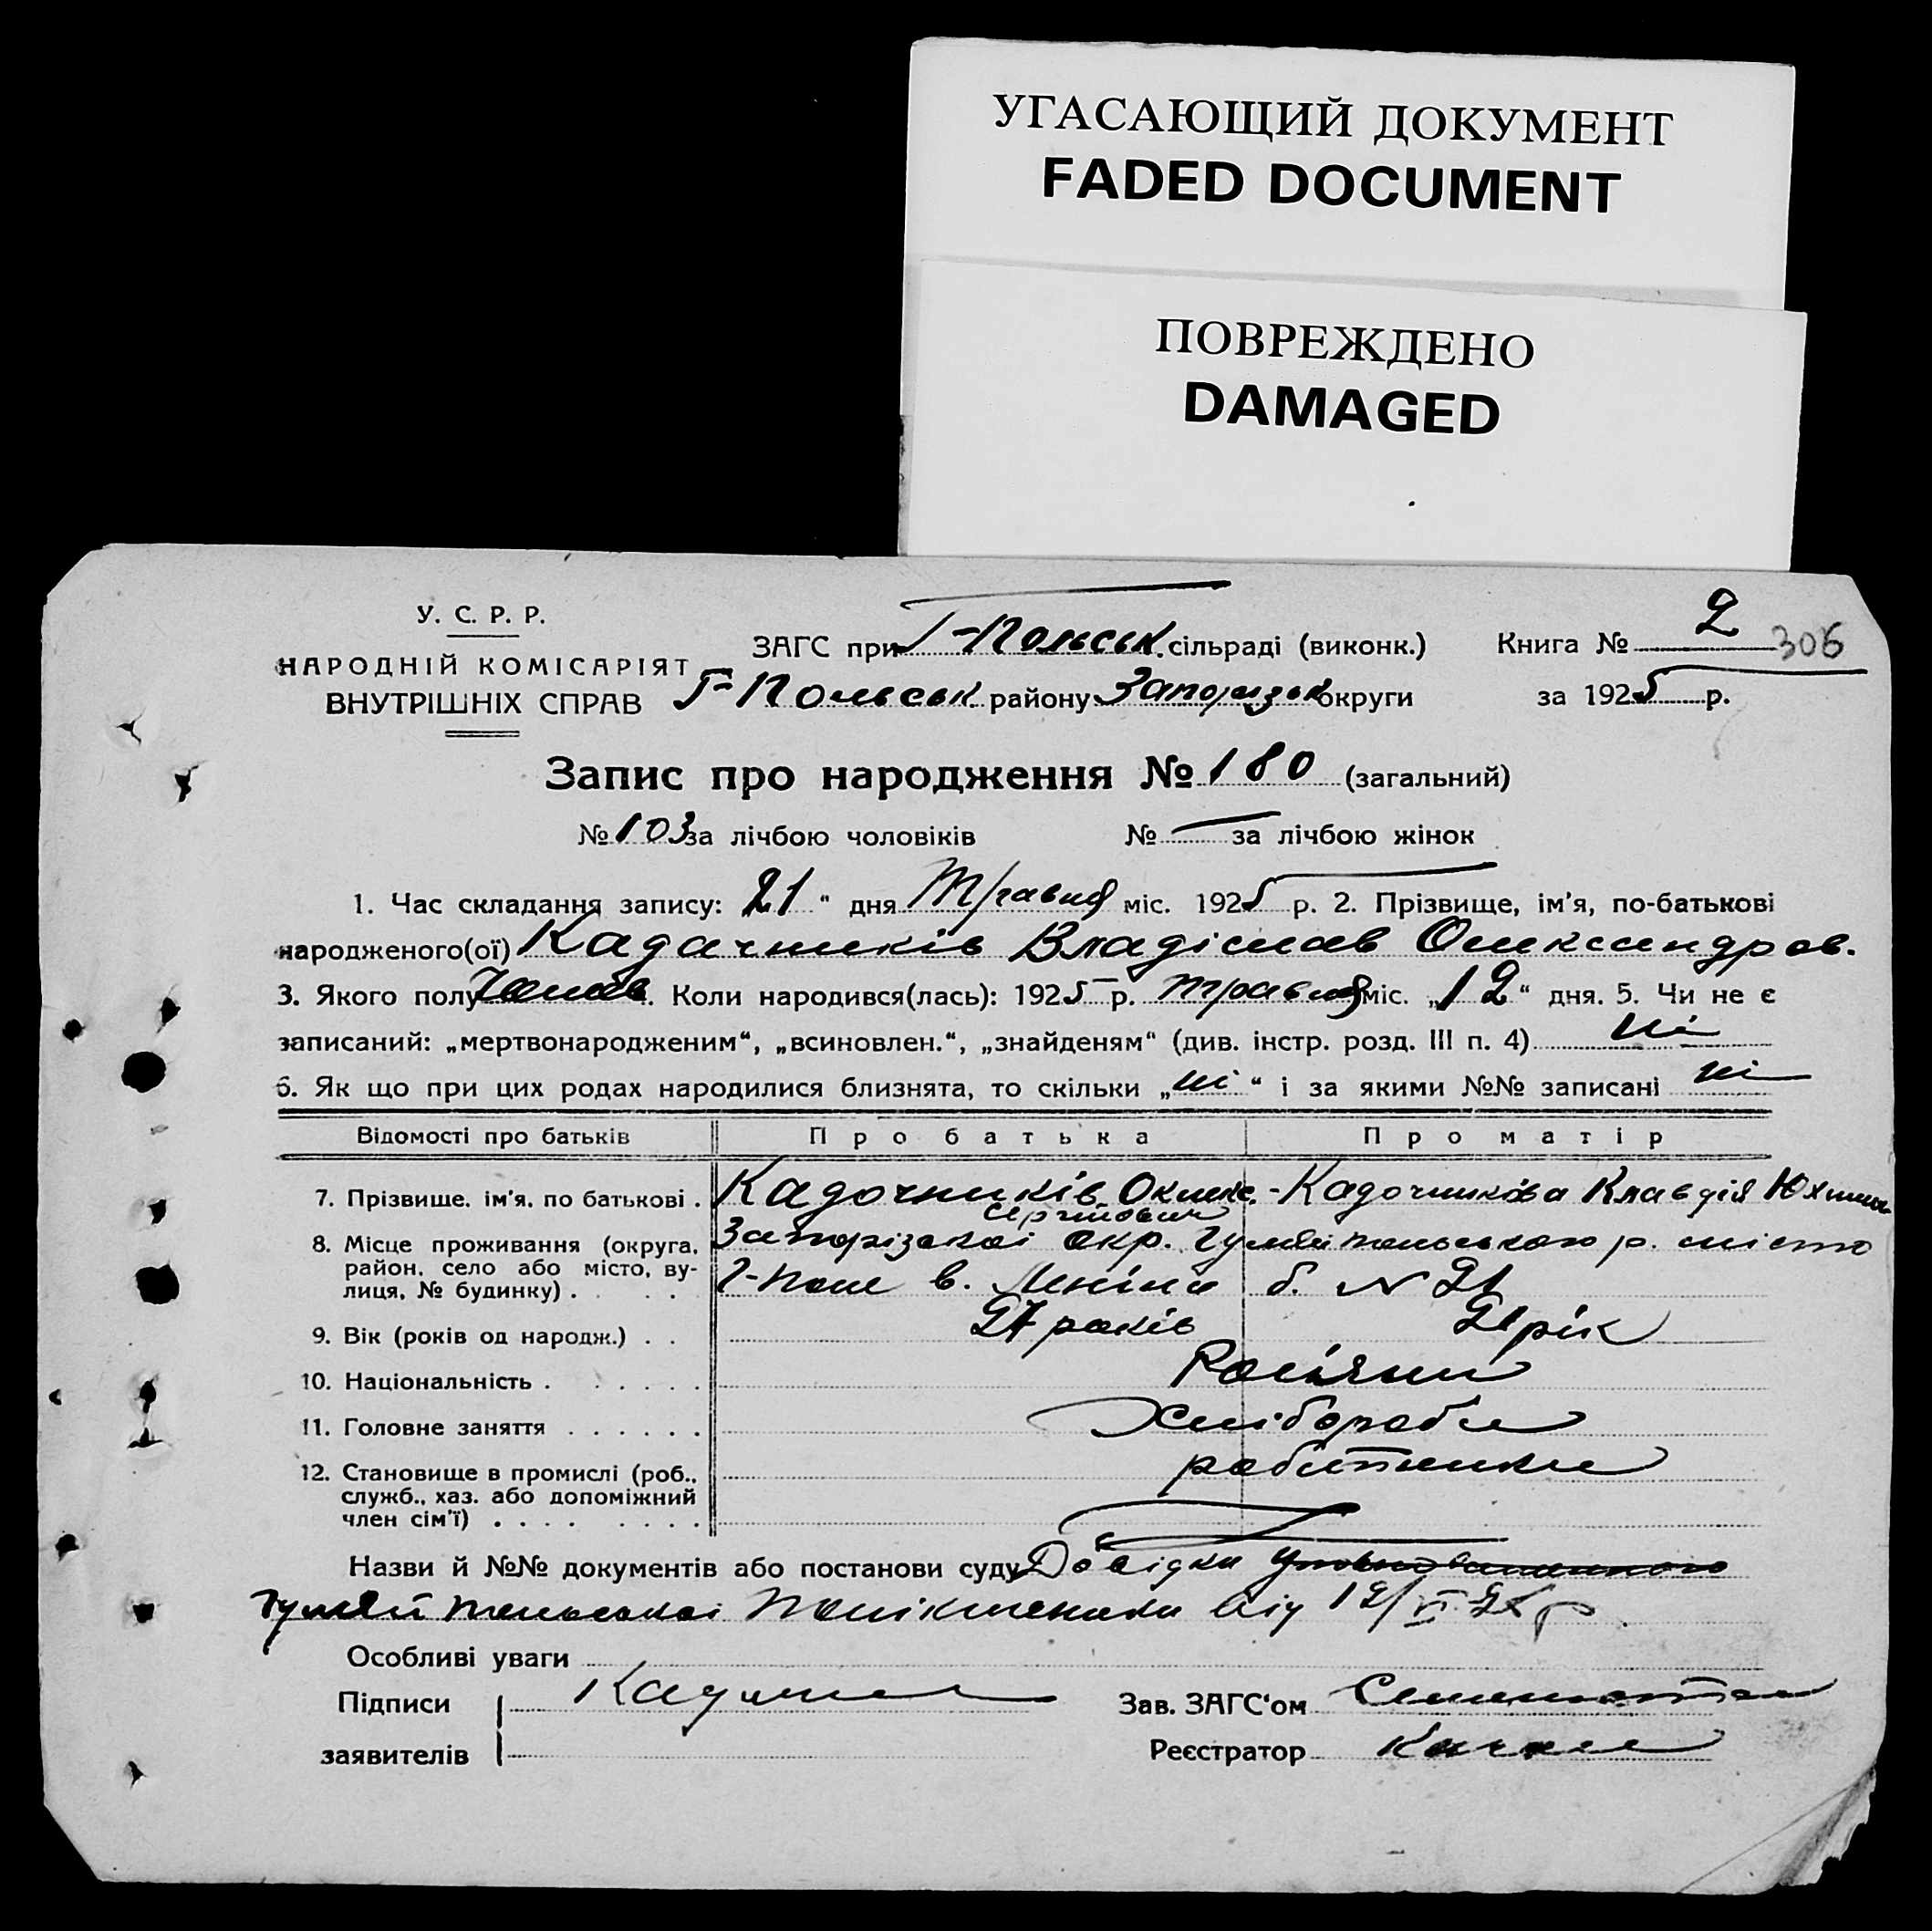 УГАСАЮЩИЙ ДОКУМЕНТ
FADED DOCUMENT
ПОВРЕЖДЕНО
DAMAGED
У. С. Р. Р.
НАРОДНІЙ КОМІСАРІЯТ
ВНУТРІШНІХ СПРАВ
ЗАГС при Г-Польськ. сільраді (виконк.)
Г-Польськ. району Запорізьк округи
Книга № 2 306
за 1925 р.
Запис про народження № 180 (загальний)
№ 103 за лічбою чоловіків № — за лічбою жінок
1. Час складання запису: 21 " дня Травня міс. 1925 р. 2. Прізвище, ім'я, по-батькові
народженого(ої) Кадачників Владіслав Олександров.
3. Якого полу Чолов. Коли народився(лась): 1925 р. травня міс. „12“ дня. 5. Чи не є
записаний: „мертвонародженим“, „всиновлен.“, „знайденям“ (див. інстр. розд. III п. 4) ні
6. Як що при цих родах народилися близнята, то скільки „ні“ і за якими №№ записані ні
Відомості про батьків Про батька Про матір
7. Прізвише. ім'я. по батькові . Кадочників Олекс. - Кадочникова Клавдія Юхим
Сергійович
8. Місце проживання (округа, Запорізької окр. Гуляй польського р. місто
район, село або місто, ву-
лиця, № будинку) . Г-поле в. Леніна б. № 21
9. Вік (років од народж.) . . 27 років 21 рік
10. Національність . Росіяни
11. Головне заняття Хлібороби
12. Становище в промислі (роб., робітники
служб., хаз. або допоміжний
член сім'ї)
Назви й №№ документів або постанови суду Довідки
Гуляй польської Поліклініки від 12/
Особливі уваги
Підписи
заявителів
Зав. ЗАГС'ом
Реєстратор